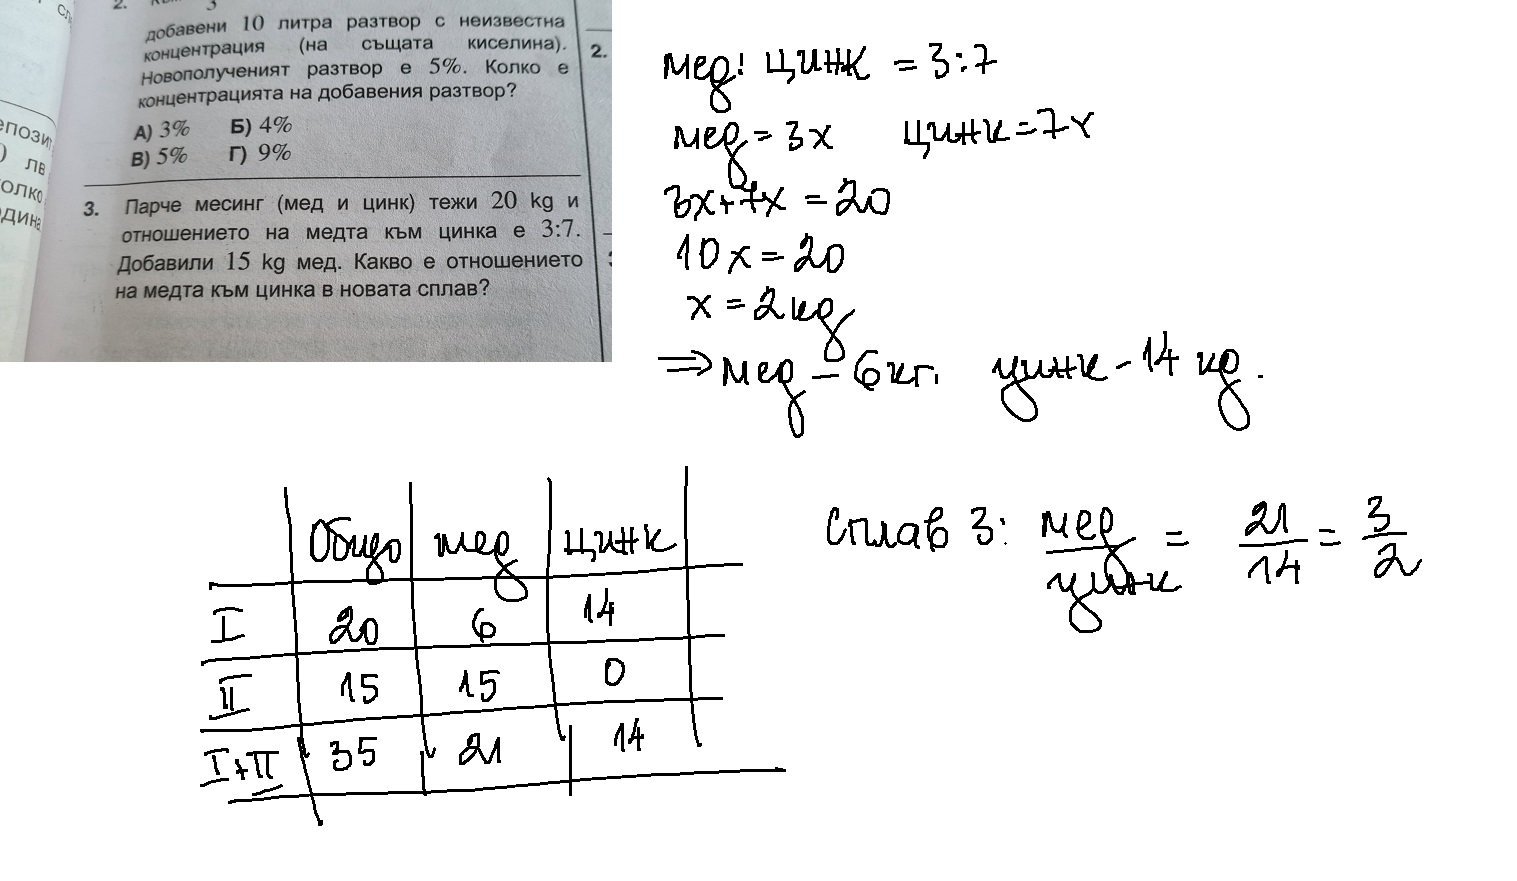 2.
3
добавени 10 литра разтвор с неизвестна
концентрация (на същата киселина).
Новополученият разтвор е 5%. Колко е
концентрацията на добавения разтвор?
А) 3% Б) 4%
В) 5% Г) 9%
3. Парче месинг (мед и цинк) тежи 20 kg и
отношението на медта към цинка е 3:7.
Добавили 15 kg мед. Какво е отношението
на медта към цинка в новата сплав?
2.
лв
мед: цинк = 3:7
мед = 3x цинк = 7x
3x+7x = 20
10x = 20
x = 2кg
⇒ мед – 6кг. цинк - 14 кg.
Общо мед цинк
I 20 6 14
II 15 15 0
I+II 35 21 14
Сплав 3: мед/цинк = 21/14 = 3/2